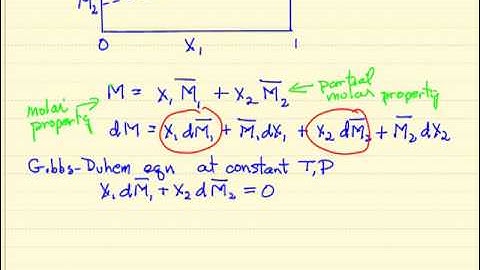 M̅₂
0 X₁ 1
M = x₁ M̅₁ + x₂ M̅₂ ← partial molar property
molar property
dM = x₁ dM̅₁ + M̅₁ dx₁ + x₂ dM̅₂ + M̅₂ dx₂
Gibbs-Duhem eqn at constant T,P
x₁ dM̅₁ + x₂ dM̅₂ = 0